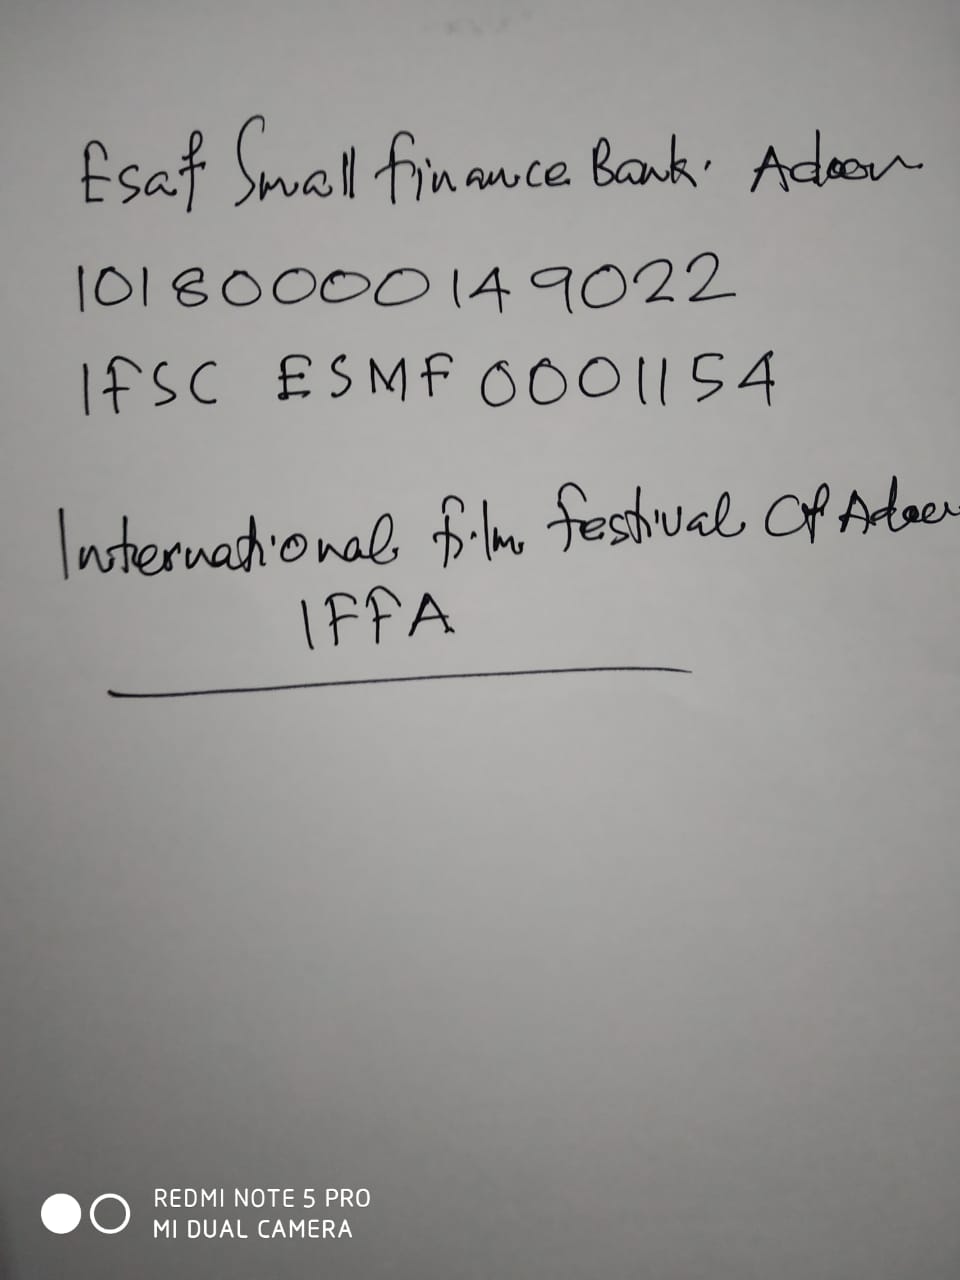 Esaf Small finance Bank. Adoor
10180000149022
IFSC ESMF0001154
International film festival Of Adoor
IFFA
REDMI NOTE 5 PRO
MI DUAL CAMERA